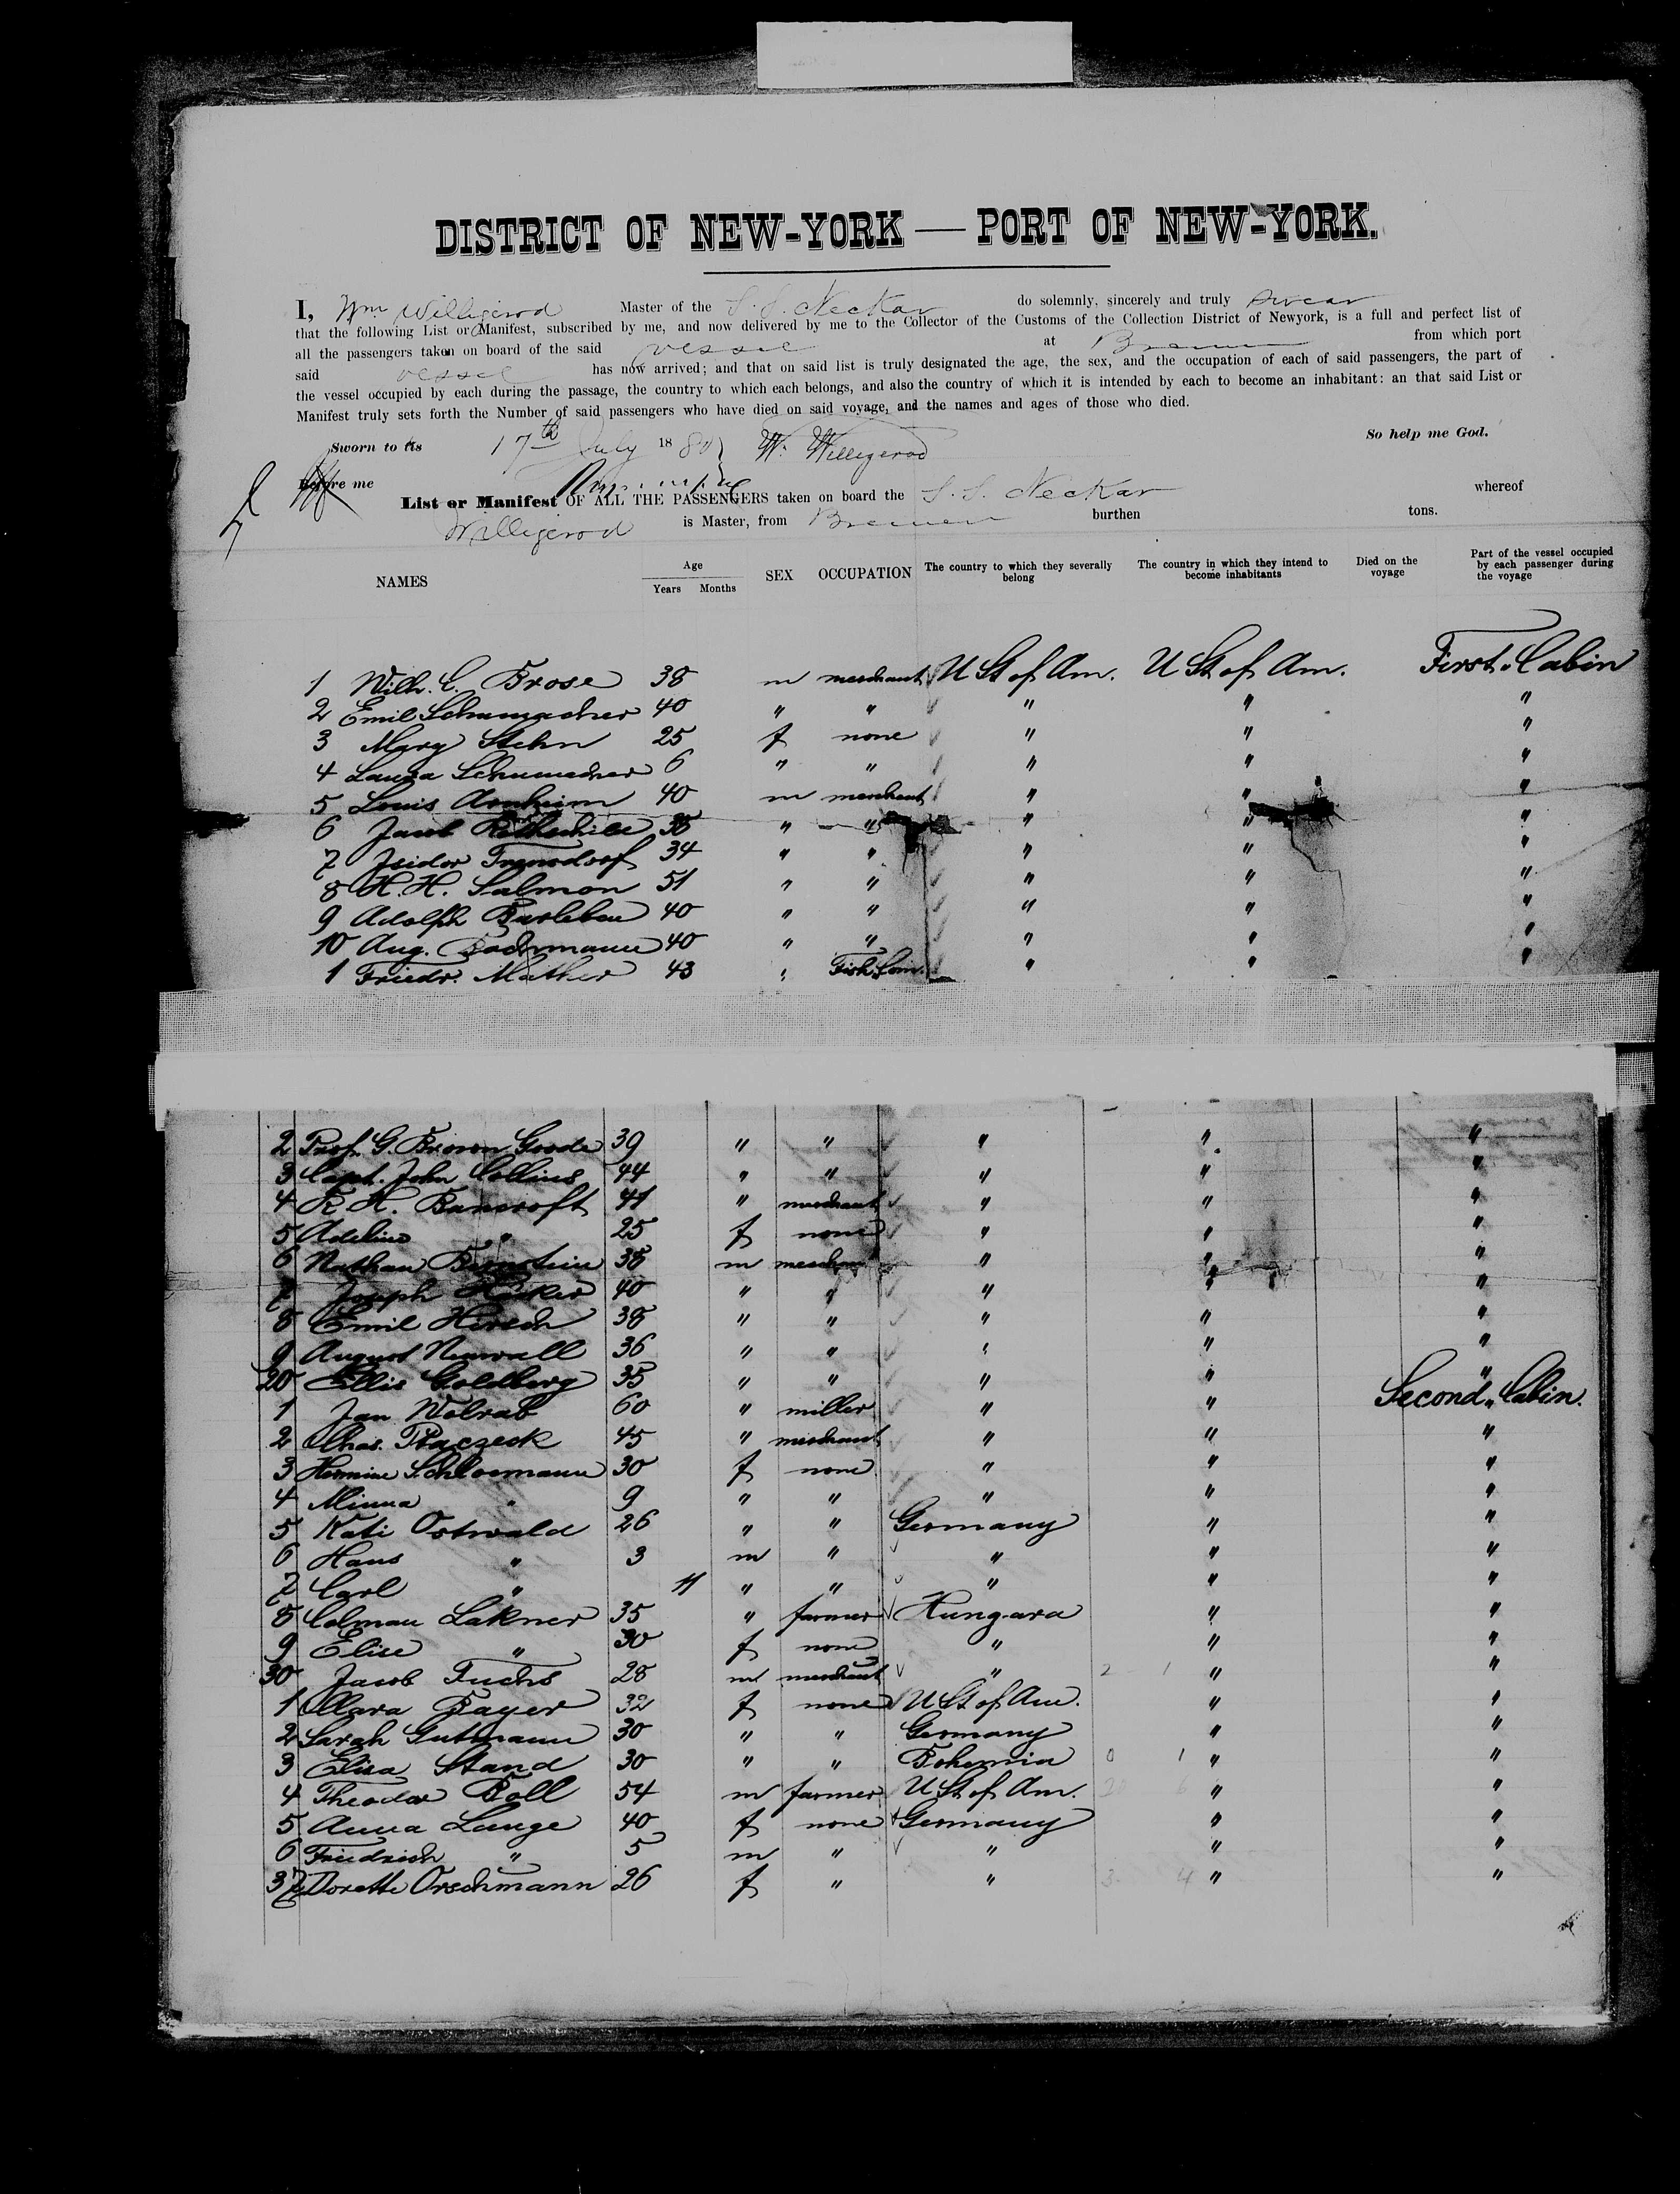 DISTRICT OF NEW-YORK — PORT OF NEW-YORK.
I, Wm Willigerod Master of the S. S. Neckar do solemnly, sincerely and truly swear
that the following List or Manifest, subscribed by me, and now delivered by me to the Collector of the Customs of the Collection District of Newyork, is a full and perfect list of
all the passengers taken on board of the said vessel at Bremen from which port
said vessel has now arrived; and that on said list is truly designated the age, the sex, and the occupation of each of said passengers, the part of
the vessel occupied by each during the passage, the country to which each belongs, and also the country of which it is intended by each to become an inhabitant: an that said List or
Manifest truly sets forth the Number of said passengers who have died on said voyage, and the names and ages of those who died.
Sworn to tis 17th July 1880 W. Willigerod So help me God.
Before me
List or Manifest OF ALL THE PASSENGERS taken on board the S. S. Neckar whereof
Willigerod is Master, from Bremen burthen tons.
NAMES Age Years Months SEX OCCUPATION The country to which they severally belong The country in which they intend to become inhabitants Died on the voyage Part of the vessel occupied by each passenger during the voyage
1 Wilh. C. Brose 38 m merchant U St of Am. U St of Am. First Cabin
2 Emil Schumacher 40 " " " " "
3 Mary Stehn 25 f none " " "
4 Laura Schumacher 6 " " " " "
5 Louis Arnheim 40 m merchant " " "
6 Jacob Rothschild " " " " "
7 Isidor 34 " " " " "
8 H. H. Salmon 51 " " " " "
9 Adolph Barleben 40 " " " " "
10 Aug. Bachmann 40 " " " " "
1 Friedr. Mather 43 " Fish Com. " " "
2 Prof. G. Brown Goode 39 " " " " "
3 Capt. John Collins 44 " " " " "
4 R. H. Bancroft 41 " merchant " " "
5 Adeline " 25 f none " " "
6 Nathan Bernstein 38 m merchant " " "
7 Joseph Hecker 40 " " " " "
8 Emil Hirsch 38 " " " " "
9 August Neuwall 36 " " " " "
20 Ellis Goldberg 35 " " " " "
1 Jan Wolrab 60 " miller " " Second Cabin.
2 Chas. Ptaczeck 45 " merchant " " "
3 Hermine Schloemann 30 f none " " "
4 Minna " 9 " " " " "
5 Kati Ostwald 26 " " Germany " "
6 Hans " 3 m " " " "
7 Carl " 11 " " " " "
8 Colman Lakner 35 " farmer Hungara " "
9 Elise " 30 f none " " "
30 Jacob Fuchs 28 m merchant " 2 1 " "
1 Clara Bayer 32 f none U St of Am. " "
2 Sarah Gutmann 30 " " Germany " "
3 Elisa Stand 30 " " Bohemia 0 1 " "
4 Theodor Boll 54 m farmer U St of Am. 20 6 " "
5 Anna Lange 40 f none Germany " "
6 Friedrich " 5 m " " " "
37 Dorette Orschmann 26 f " " 3 4 " "